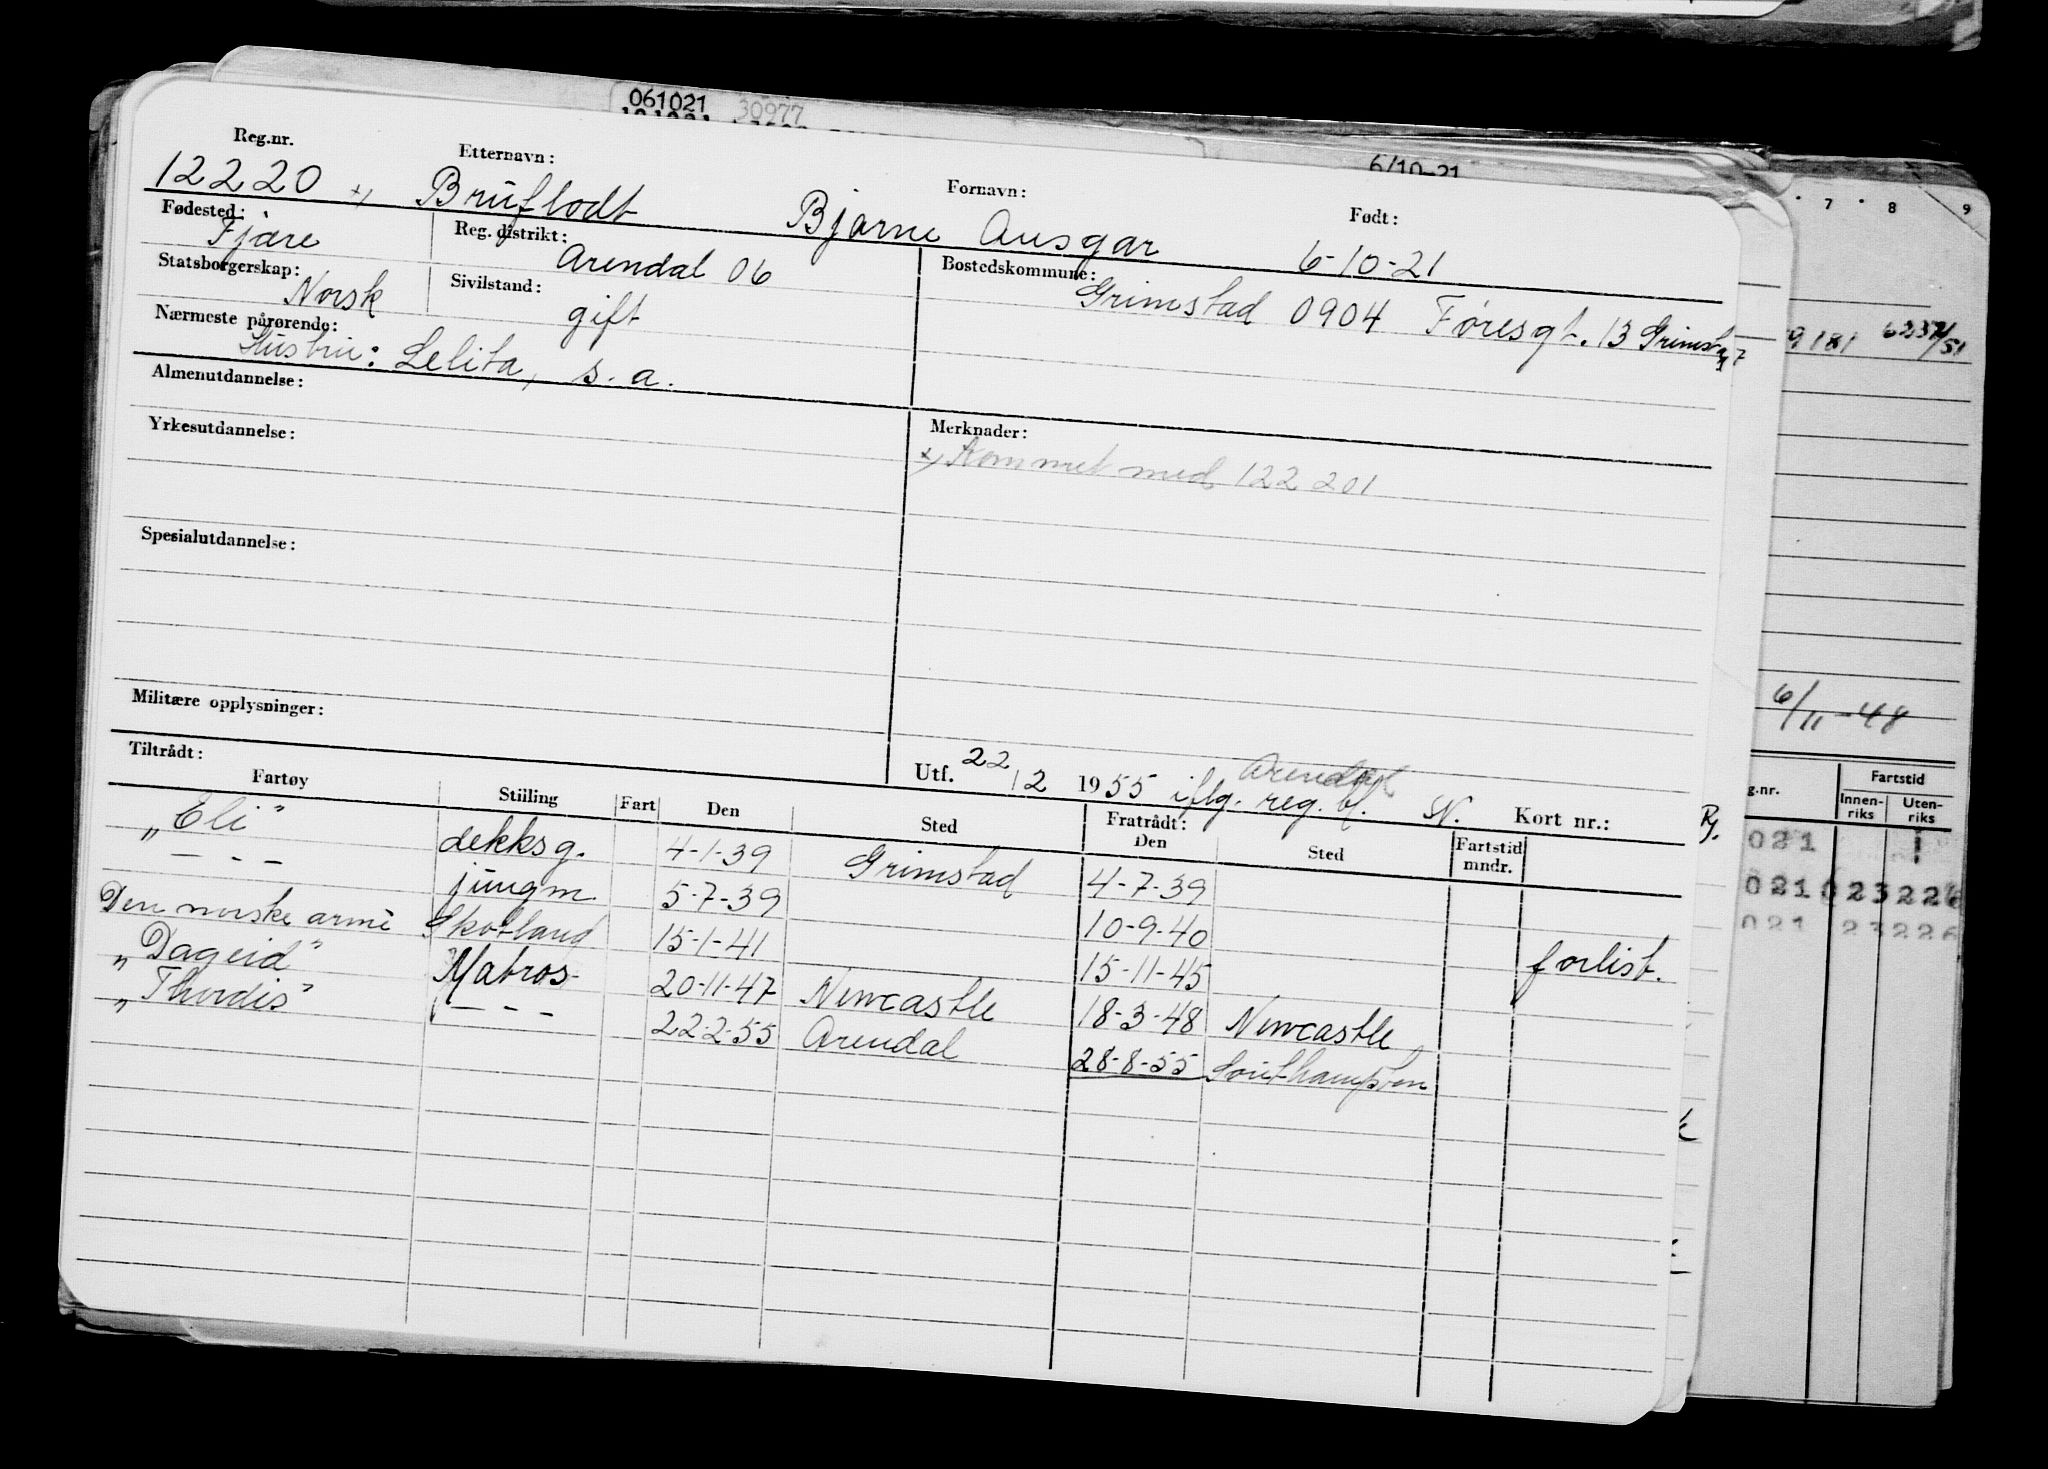 061021 30977
6/10-21
7 8 9
Reg.nr. Etternavn: Fornavn: Født:
12220 x) Bruflodt Bjarne Ansgar 6-10-21
Fødested: Fjære Reg. distrikt: Arendal 06 Bostedskommune: Grimstad 0904 Føresgt. 13 Grimst
Statsborgerskap: Norsk Sivilstand: gift
Nærmeste pårørende: Hustru: Lelita, s. a.
9181 6237/51
Almenutdannelse:
Yrkesutdannelse: Merknader:
x) Kommet med 122 201
Spesialutdannelse:
Militære opplysninger:
6/11-48
Utf. 22/2 1955 iflg. Arendal reg. bl. N. Kort nr.:
Tiltrådt: Fratrådt:
Fartøy Stiilling Fart Den Sted Den Sted Fartstid mndr.
"Eli" dekksg. 4-1-39 Grimstad 4-7-39
— - - jungm. 5-7-39 10-9-40 forlist.
Den norske armè Skotland 15-1-41 15-11-45
"Dageid" Matros 20-11-47 Newcastle 18-3-48 Newcastle
"Thordis" — - - 22-2-55 Arendal 28-8-55 Southampton
g.nr. Fartstid
Innen-riks Uten-riks
021 1
0210 23226
021 23226